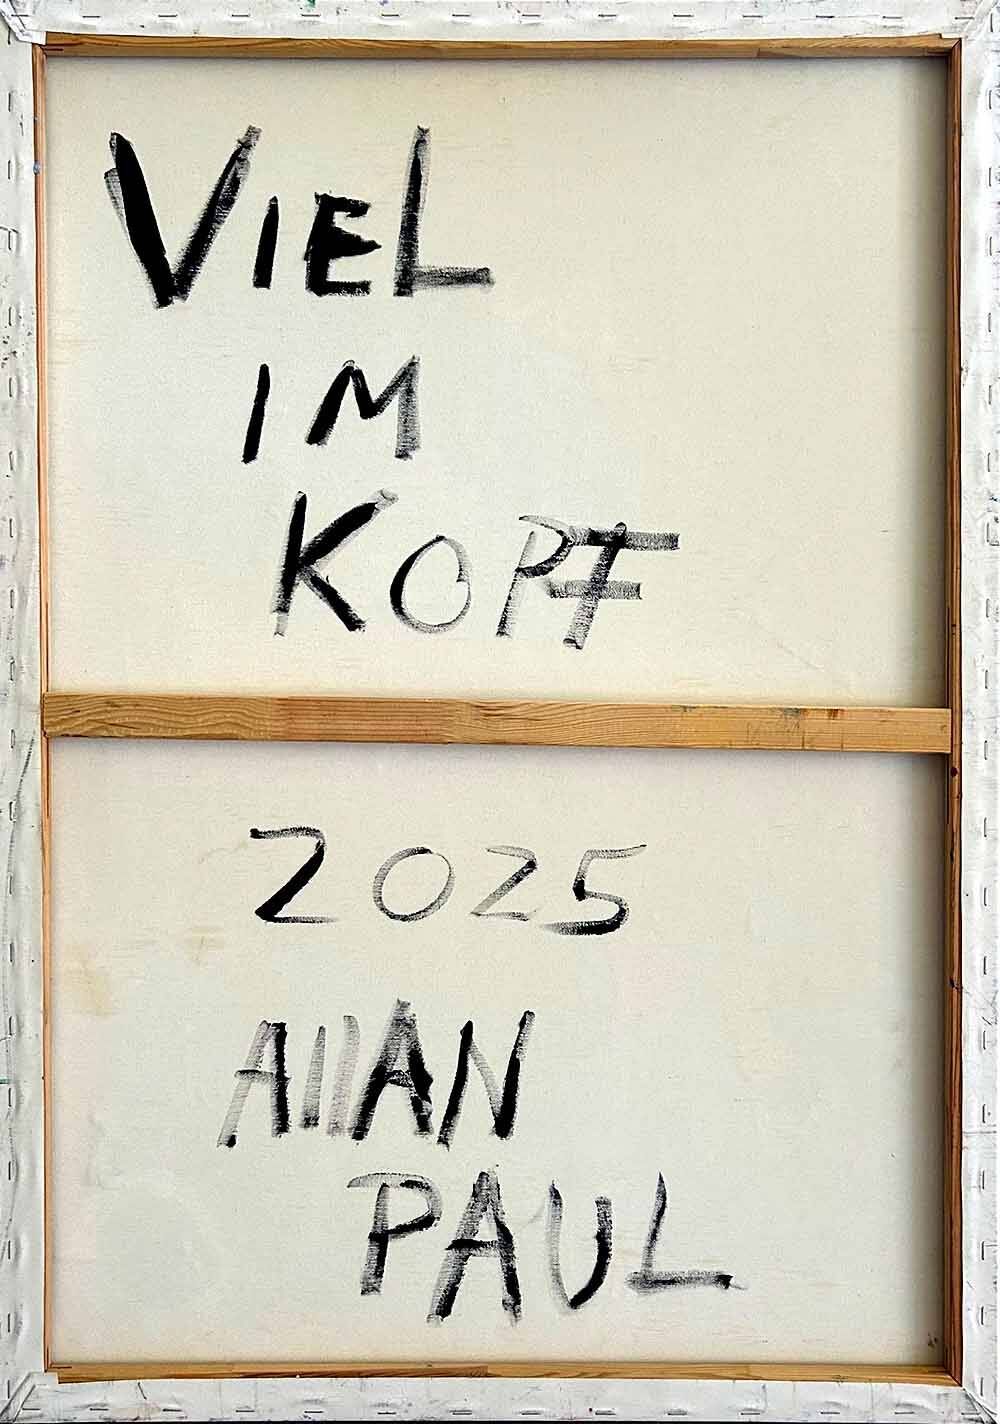 VIEL
IM
KOPF
2025
AllAN
PAUL